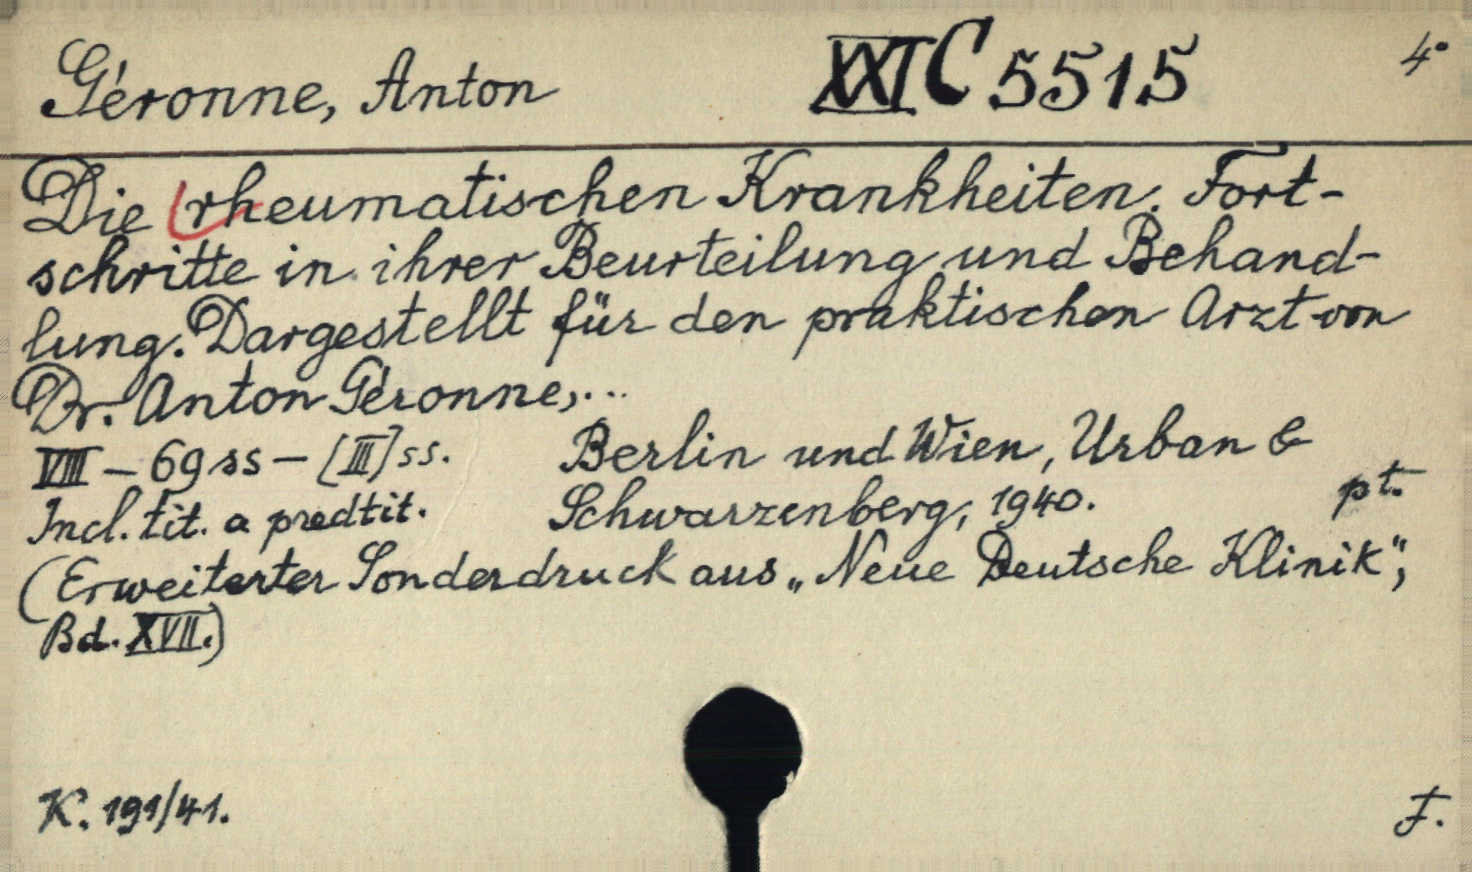 Géronne, Anton XXI C 5515 4°
Die rheumatischen Krankheiten. Fort-
schritte in ihrer Beurteilung und Behand-
lung. Dargestellt für den praktischen Arzt von
Dr. Anton Géronne,...
VIII – 69 ss – [III] ss. Berlin und Wien, Urban &
Incl. tit. a predtit. Schwarzenberg, 1940. pt.
(Erweiterter Sonderdruck aus „Neue Deutsche Klinik“,
Bd. XVII.)
K. 191/41. F.